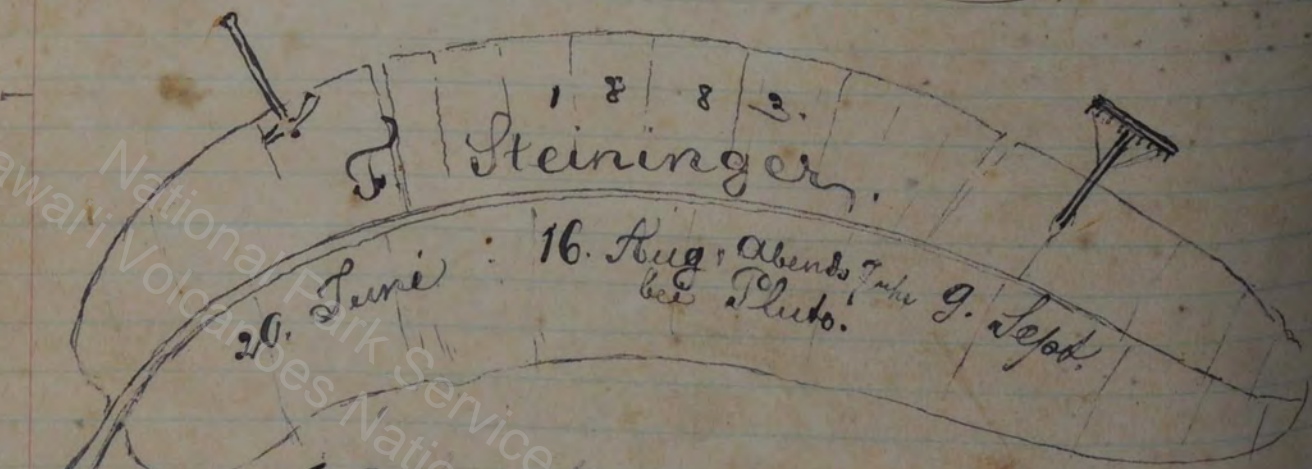 1 8 8 2.
F Steininger.
20. Juni : 16. Aug. Abends 9. Sept.
bei Pluto!
National Park Service
Hawai'i Volcanoes National